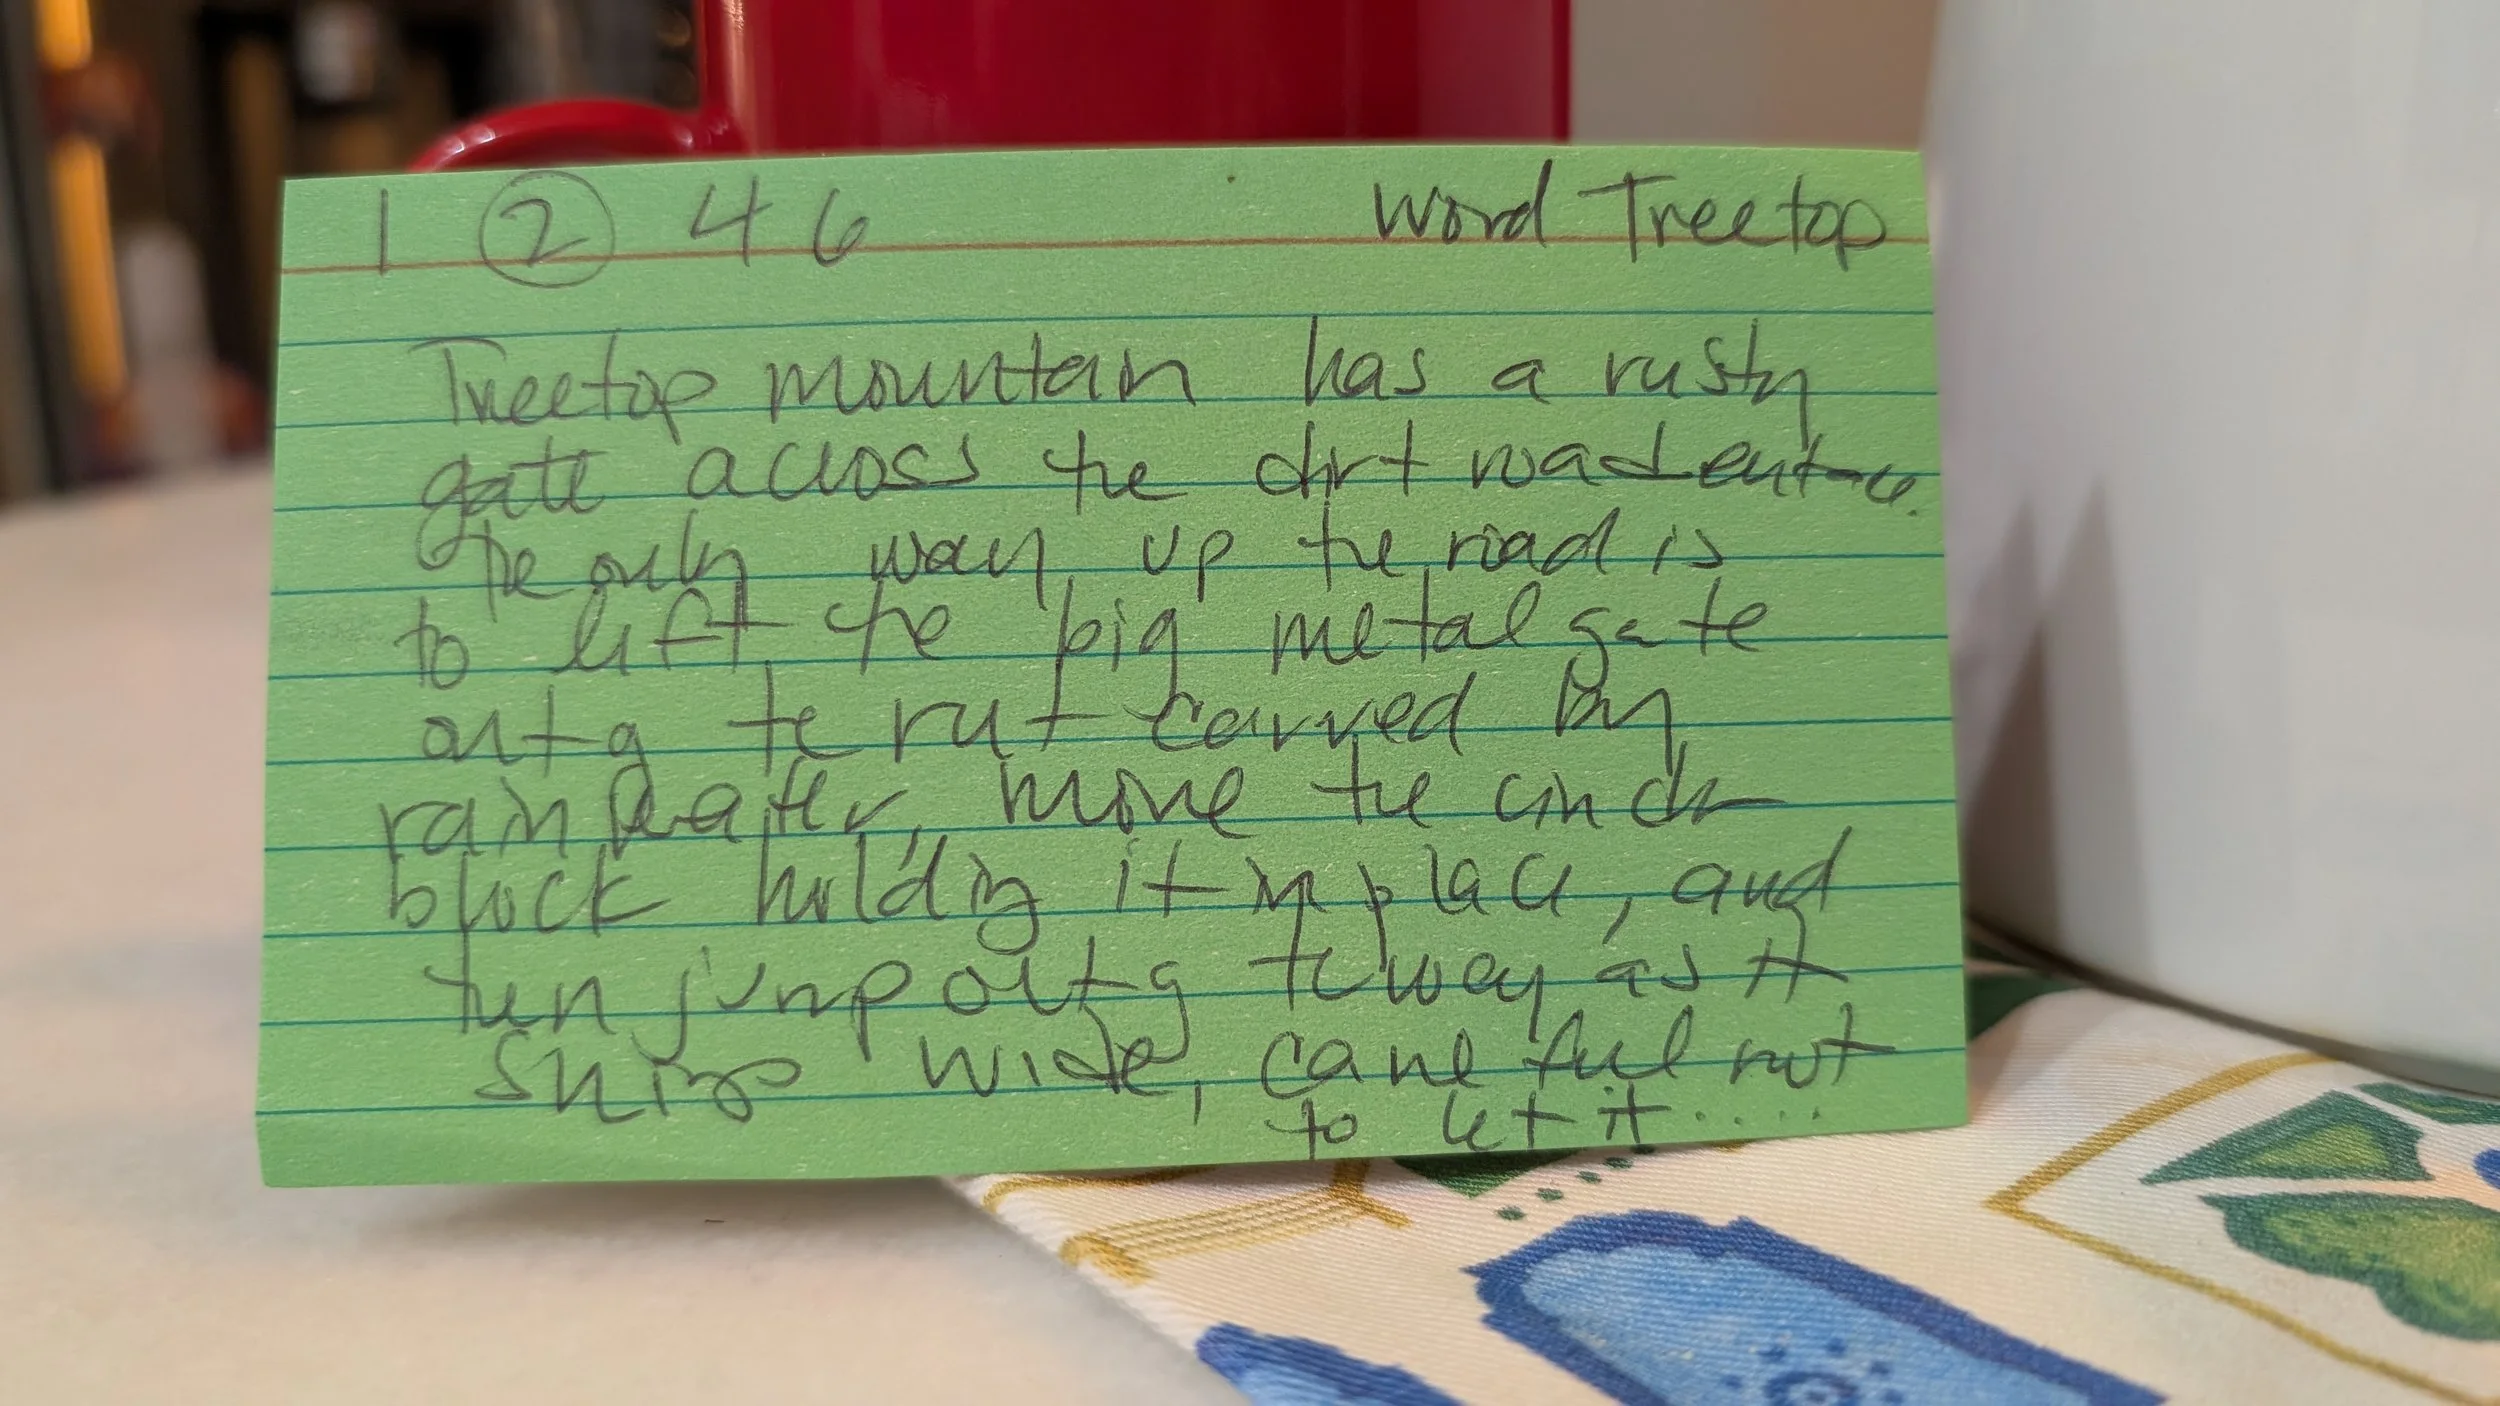 1 2 4 6 Word Treetop
Treetop mountain has a rusty
gate across the dirt road entrance.
The only way up the road is
to lift the big metal gate
out of the rut carved by
rainwater, move the cinder
block holding it in place, and
then jump out of the way as it
swings wide, careful not
to let it.....